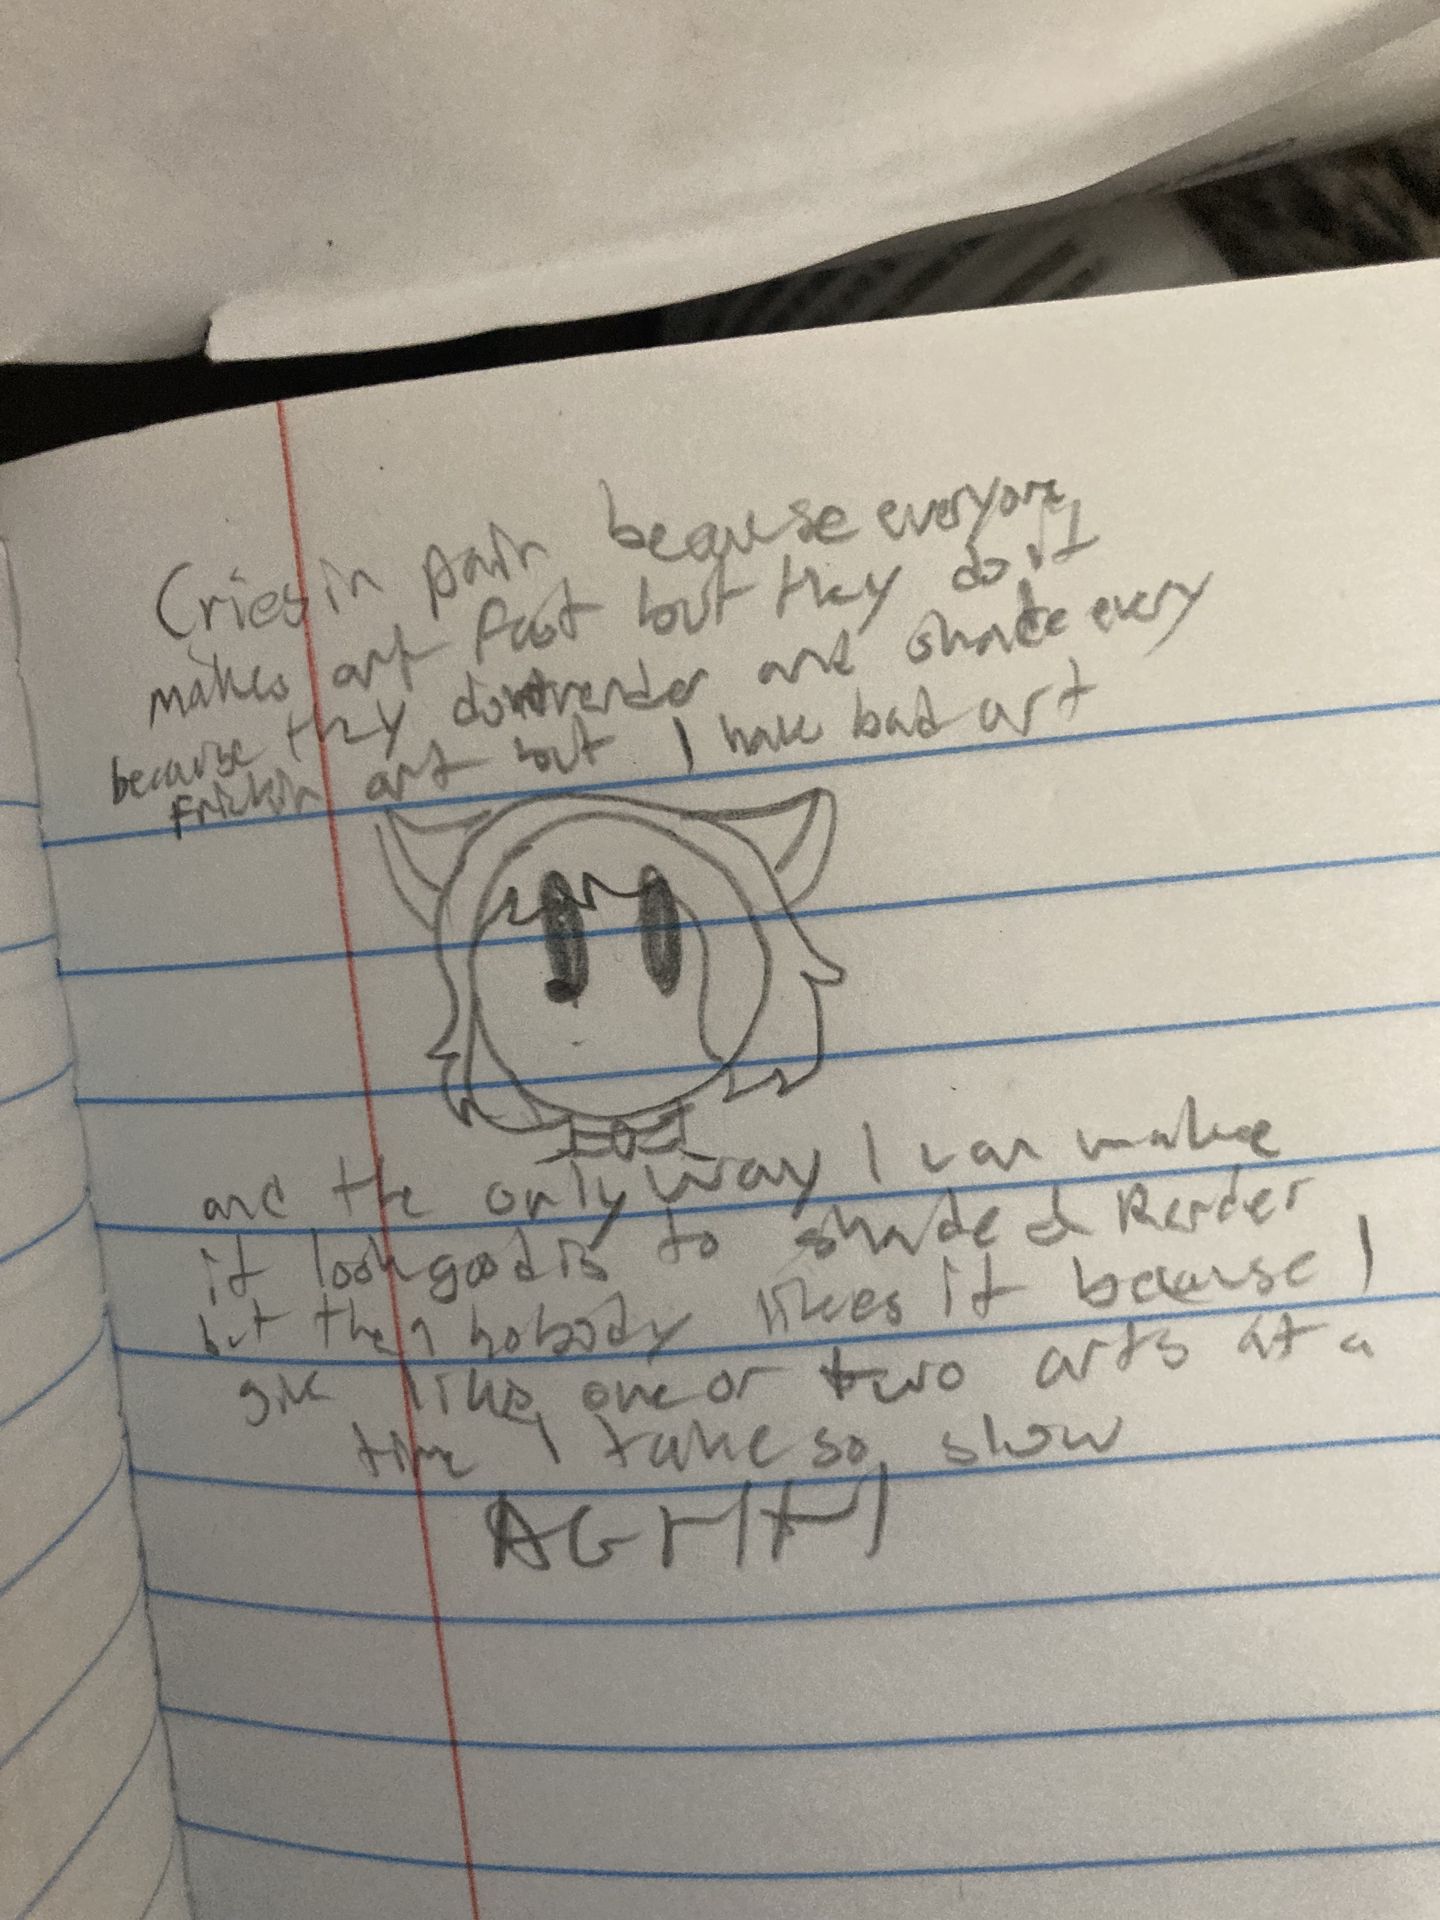 Cries in pain because everyone
makes art fast but they do it
because they dont render and shade every
frickin art but I have bad art
and the only way I can make
it look good is to shade & Render
but then nobody likes it because I
give like one or two arts at a
time I take so slow